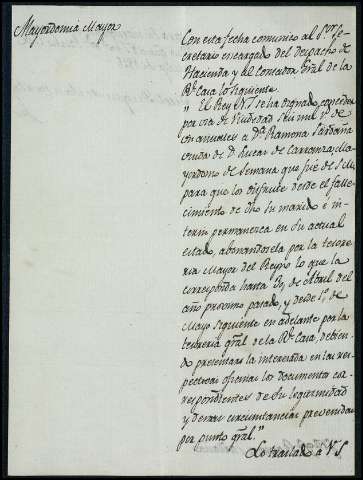 Mayordomia Mayor
Con esta fecha comunico al Sr. Se-
cretario encargado del despacho de
Hacienda y al Contador Gral de la
Rl. Casa lo siguiente.
"El Rey N. S. se ha dignado conceder
por via de Viudedad seis mil rs. de
von anuales a Da. Ramona Sardaña
viuda de D. Lucar de Carranza, Ma-
yordomo de Semana que fué de S. M.
para que los disfrute desde el falle-
cimiento de dho su marido e in-
terin permanezca en su actual
estado, abonandosela por la tesore-
ria Mayor del Reyno lo que la
corresponda hasta 30, de Abril del
año proximo pasado, y desde 1º de
Mayo siguiente en adelante por la
tesoreria gral. de la Rl. Casa, debien-
do presentar la interesada en las res-
pectivas oficinas los documentos cor-
respondientes de su legitimidad
y demas circunstancias prevenidas
por punto gral."
Lo traslado a V. S.